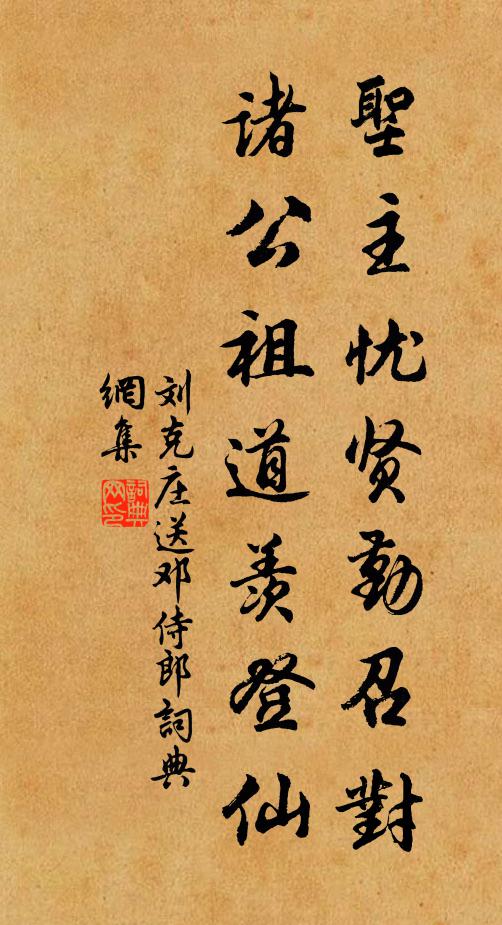 聖主忧贤勤召對
諸公祖道羡登仙
刘克庄送邓侍郎詞典
網集
詞典
网印